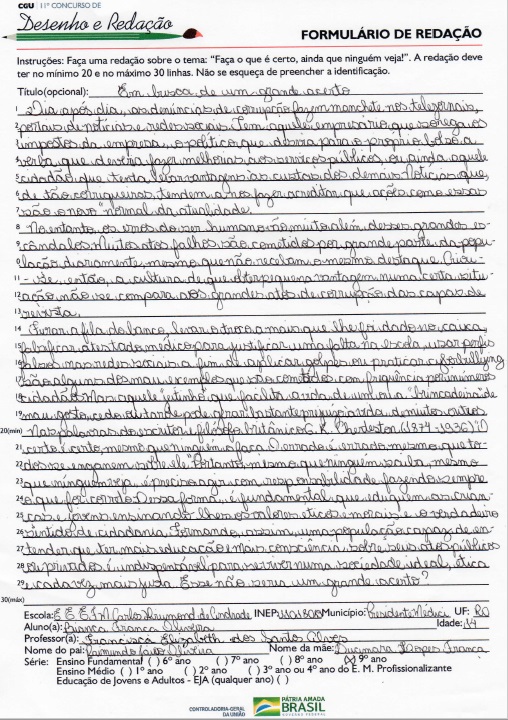 CGU | 11º CONCURSO DE
Desenho e Redação
FORMULÁRIO DE REDAÇÃO
Instruções: Faça uma redação sobre o tema: “Faça o que é certo, ainda que ninguém veja!”. A redação deve
ter no mínimo 20 e no máximo 30 linhas. Não se esqueça de preencher a identificação.
Título(opcional): Em busca de um grande acerto
1 Dia após dia, as denúncias de corrupção fazem manchete nos telejornais,
2 portais de notícias e redes sociais. Tem aquele empresário que sonega os
3 impostos da empresa, o político que desvia para o próprio bolso a
4 verba que deveria fazer melhorias aos serviços públicos, ou ainda aquele
5 cidadão que tenta levar vantagem às custas dos demais. Notícias que,
6 de tão corriqueiras, tendem a nos fazer acreditar que ações como essas
7 são o novo "normal" da atualidade.
8 No entanto, os erros do ser humano vão muito além desses grandes es-
9 cândalos. Muitos atos falhos são cometidos por grande parte da popu-
10 lação diariamente, mesmo que não recebam o mesmo destaque. Criou-
11 -se, então, a cultura de que obter pequena vantagem numa certa situ-
12 ação não se compara aos grandes atos de corrupção das capas de
13 revista.
14 Furar a fila do banco, levar o troco a mais que lhe foi dado no caixa,
15 falsificar atestado médico para justificar uma falta na escola, usar perfis
16 falsos nas redes sociais a fim de aplicar golpes ou praticar cyberbullying
17 são alguns dos maus exemplos que são cometidos com frequência por inúmeros
18 cidadãos. Mas aquele "jeitinho" que facilita a vida de um ou a "brincadeira" de
19 mau gosto, cedo ou tarde pode gerar bastante prejuízo à vida de muitos outros.
20(min) Nas palavras do escritor e filósofo britânico G. K. Chesterton (1874-1936) "O
21 certo é certo, mesmo que ninguém o faça. O errado é errado, mesmo que to-
22 dos se enganem sobre ele". Portanto, mesmo que ninguém saiba, mesmo
23 que ninguém veja, é preciso agir com responsabilidade fazendo sempre
24 o que for correto. Dessa forma, é fundamental que eduquem as crian-
25 ças e jovens ensinando-lhes os valores éticos e morais e o verdadeiro
26 sentido de cidadania. Formando, assim, uma população capaz de en-
27 tender que ter mais educação e mais consciência sobre seus atos públicos
28 ou privados é indispensável para se viver numa sociedade ideal, ética
29 e cada vez mais justa. Esse não seria um grande acerto?
30(máx)
Escola: E.E.E.F.M Carlos Drummond de Andrade INEP: Município: Presidente Médici UF: RO
Aluno(a): Bianca Franca Oliveira Idade: 14
Professor(a): Francisca Elizabeth dos Santos Alves
Nome do pai: Raimundo Oliveira Nome da mãe: Lopes Franca
Série: Ensino Fundamental ( ) 6º ano ( ) 7º ano ( ) 8º ano (X) 9º ano
Ensino Médio ( ) 1º ano ( ) 2º ano ( ) 3º ano ou 4º ano do E. M. Profissionalizante
Educação de Jovens e Adultos - EJA (qualquer ano) ( )
CONTROLADORIA-GERAL
DA UNIÃO
PÁTRIA AMADA
BRASIL
GOVERNO FEDERAL